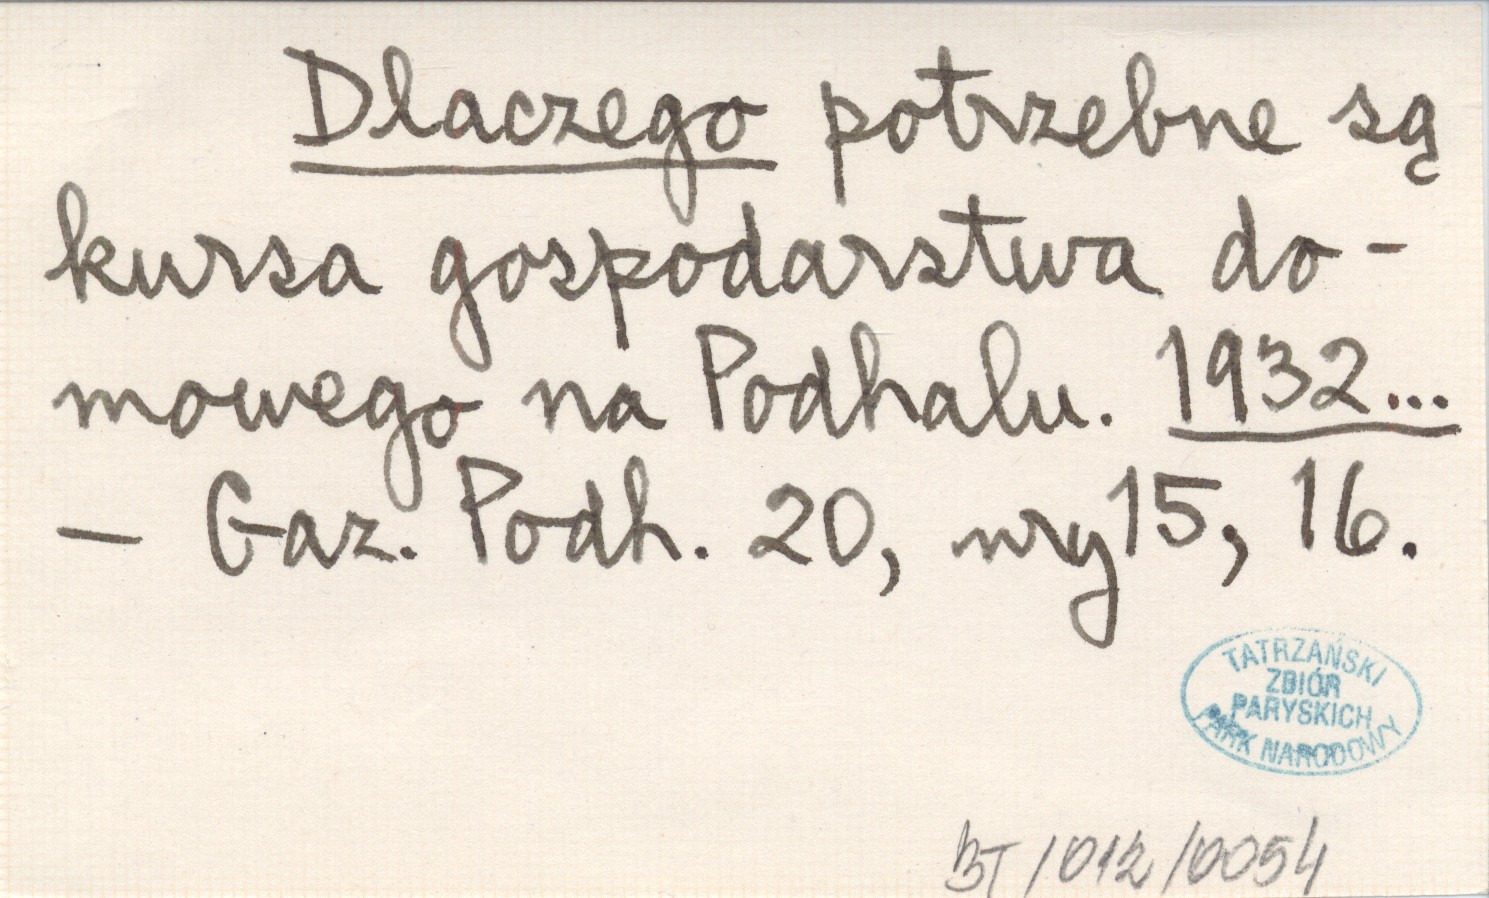 Dlaczego potrzebne są
kursa gospodarstwa do-
mowego na Podhalu. 1932...
— Gaz. Podh. 20, nry 15, 16.
TATRZAŃSKI
ZBIÓR
PARYSKICH
PARK NARODOWY
BT/012/0054